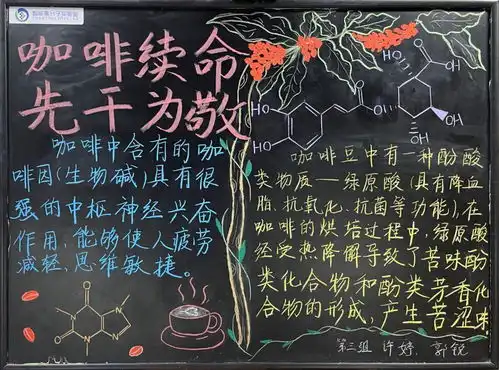 咖啡续命
先干为敬
咖啡中含有的咖
啡因(生物碱)具有很
强的中枢神经兴奋
作用,能够使人疲劳
减轻,思维敏捷。
HO
HO
O
O
HO
O
OH
OH
OH
咖啡豆中有一种酚酸
类物质—绿原酸(具有降血
脂、抗氧化、抗菌等功能),在
咖啡的烘培过程中,绿原酸
经受热降解导致了苦味酚
类化合物和酚类芳香化
合物的形成,产生苦涩味.
O
N
N
O
N
N
第三组 许婷 郭锐